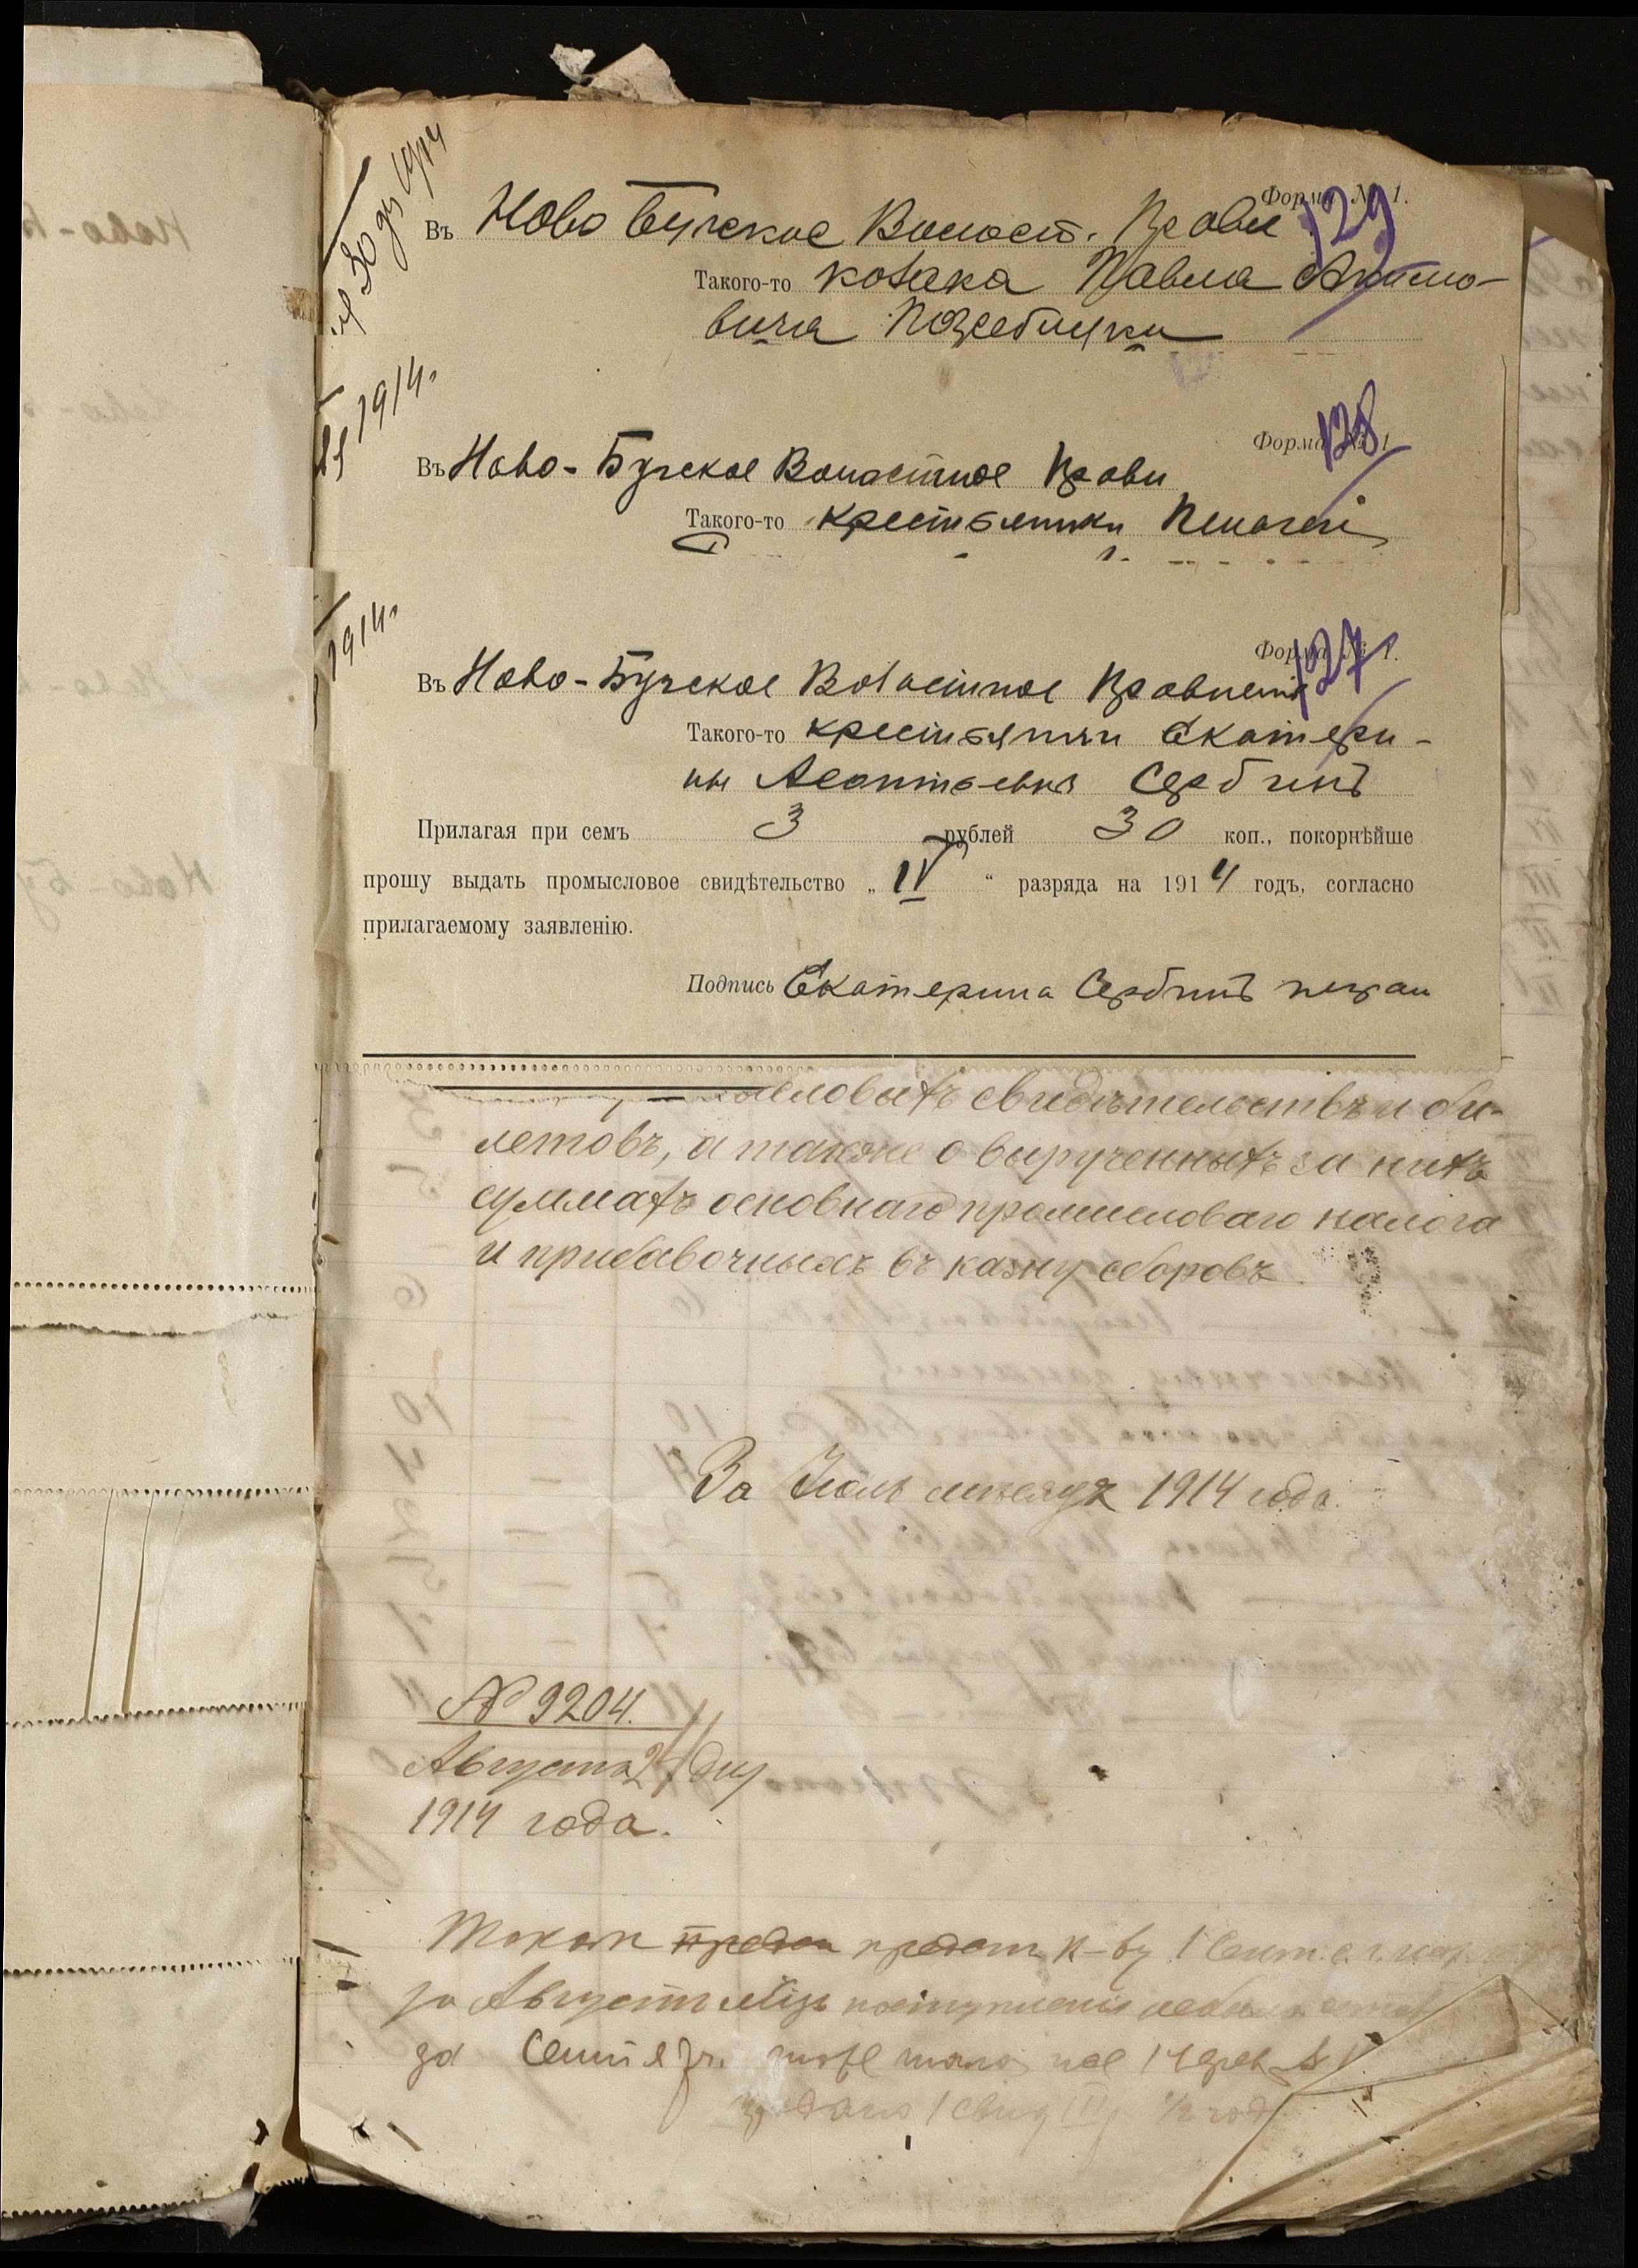 Форма № 1.
129
Въ Ново Бугское Волост. Правл
Такого-то козака Павла Акимо-
вича
1914.
Форма № 1
128
Въ Ново-Бугское Волостное Правл
Такого-то крестьянки Пелагеи
1914.
Форма № 1.
127
Въ Ново-Бугское Волостное Правленіе
Такого-то крестьянки Екатери-
ны Леонтьевны Сербинъ
Прилагая при семъ 3 рублей 30 коп., покорнѣйше
прошу выдать промысловое свидѣтельство „ IV “ разряда на 1914 годъ, согласно
прилагаемому заявленію.
Подпись Екатерина Сербинъ неграм
словыхъ свидѣтельствъ и би-
летовъ, а также о вырученныхъ за нихъ
суммахъ основнаго промысловаго налога
и прибавочныхъ въ казну сборовъ.
За Іюль мѣсяцъ 1914 года.
№ 9204.
Августа дня
1914 года.
предст к-ву 1 Сент. с. г.
за Августъ мѣць поступленія не было
за Сентябр. тоже
1 свид IV 1/2 год